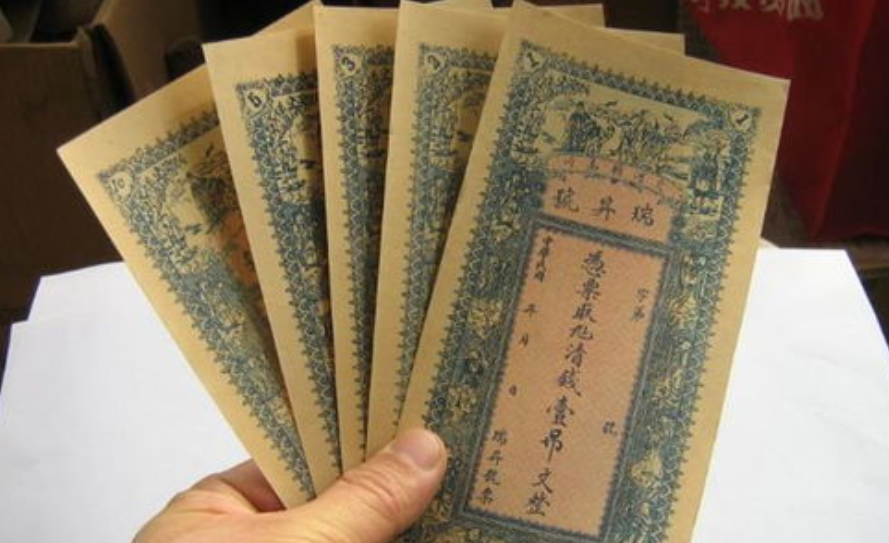 10
5
3
2
1
1
瑞昇號
字第 號
憑票取九清錢壹吊文整
中華民國 年 月 日 瑞昇號票